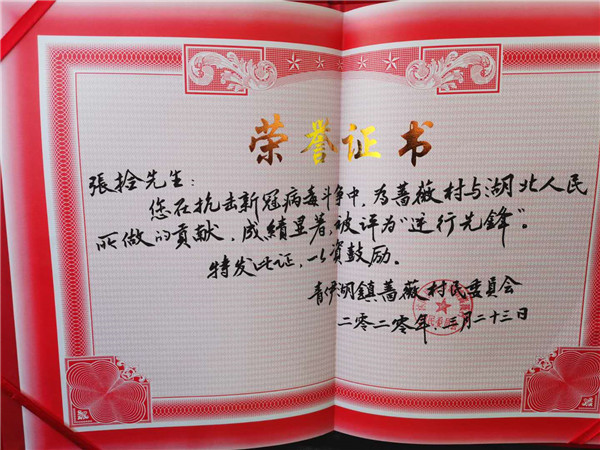 荣誉证书
張拴先生：
您在抗击新冠病毒斗争中，为蔷薇村与湖北人民
所做的贡献，成績显著，被评为“逆行先鋒”。
特发此证，以资鼓励。
青伊湖鎮蔷薇村民委員会
二零二零年．三月二十三日